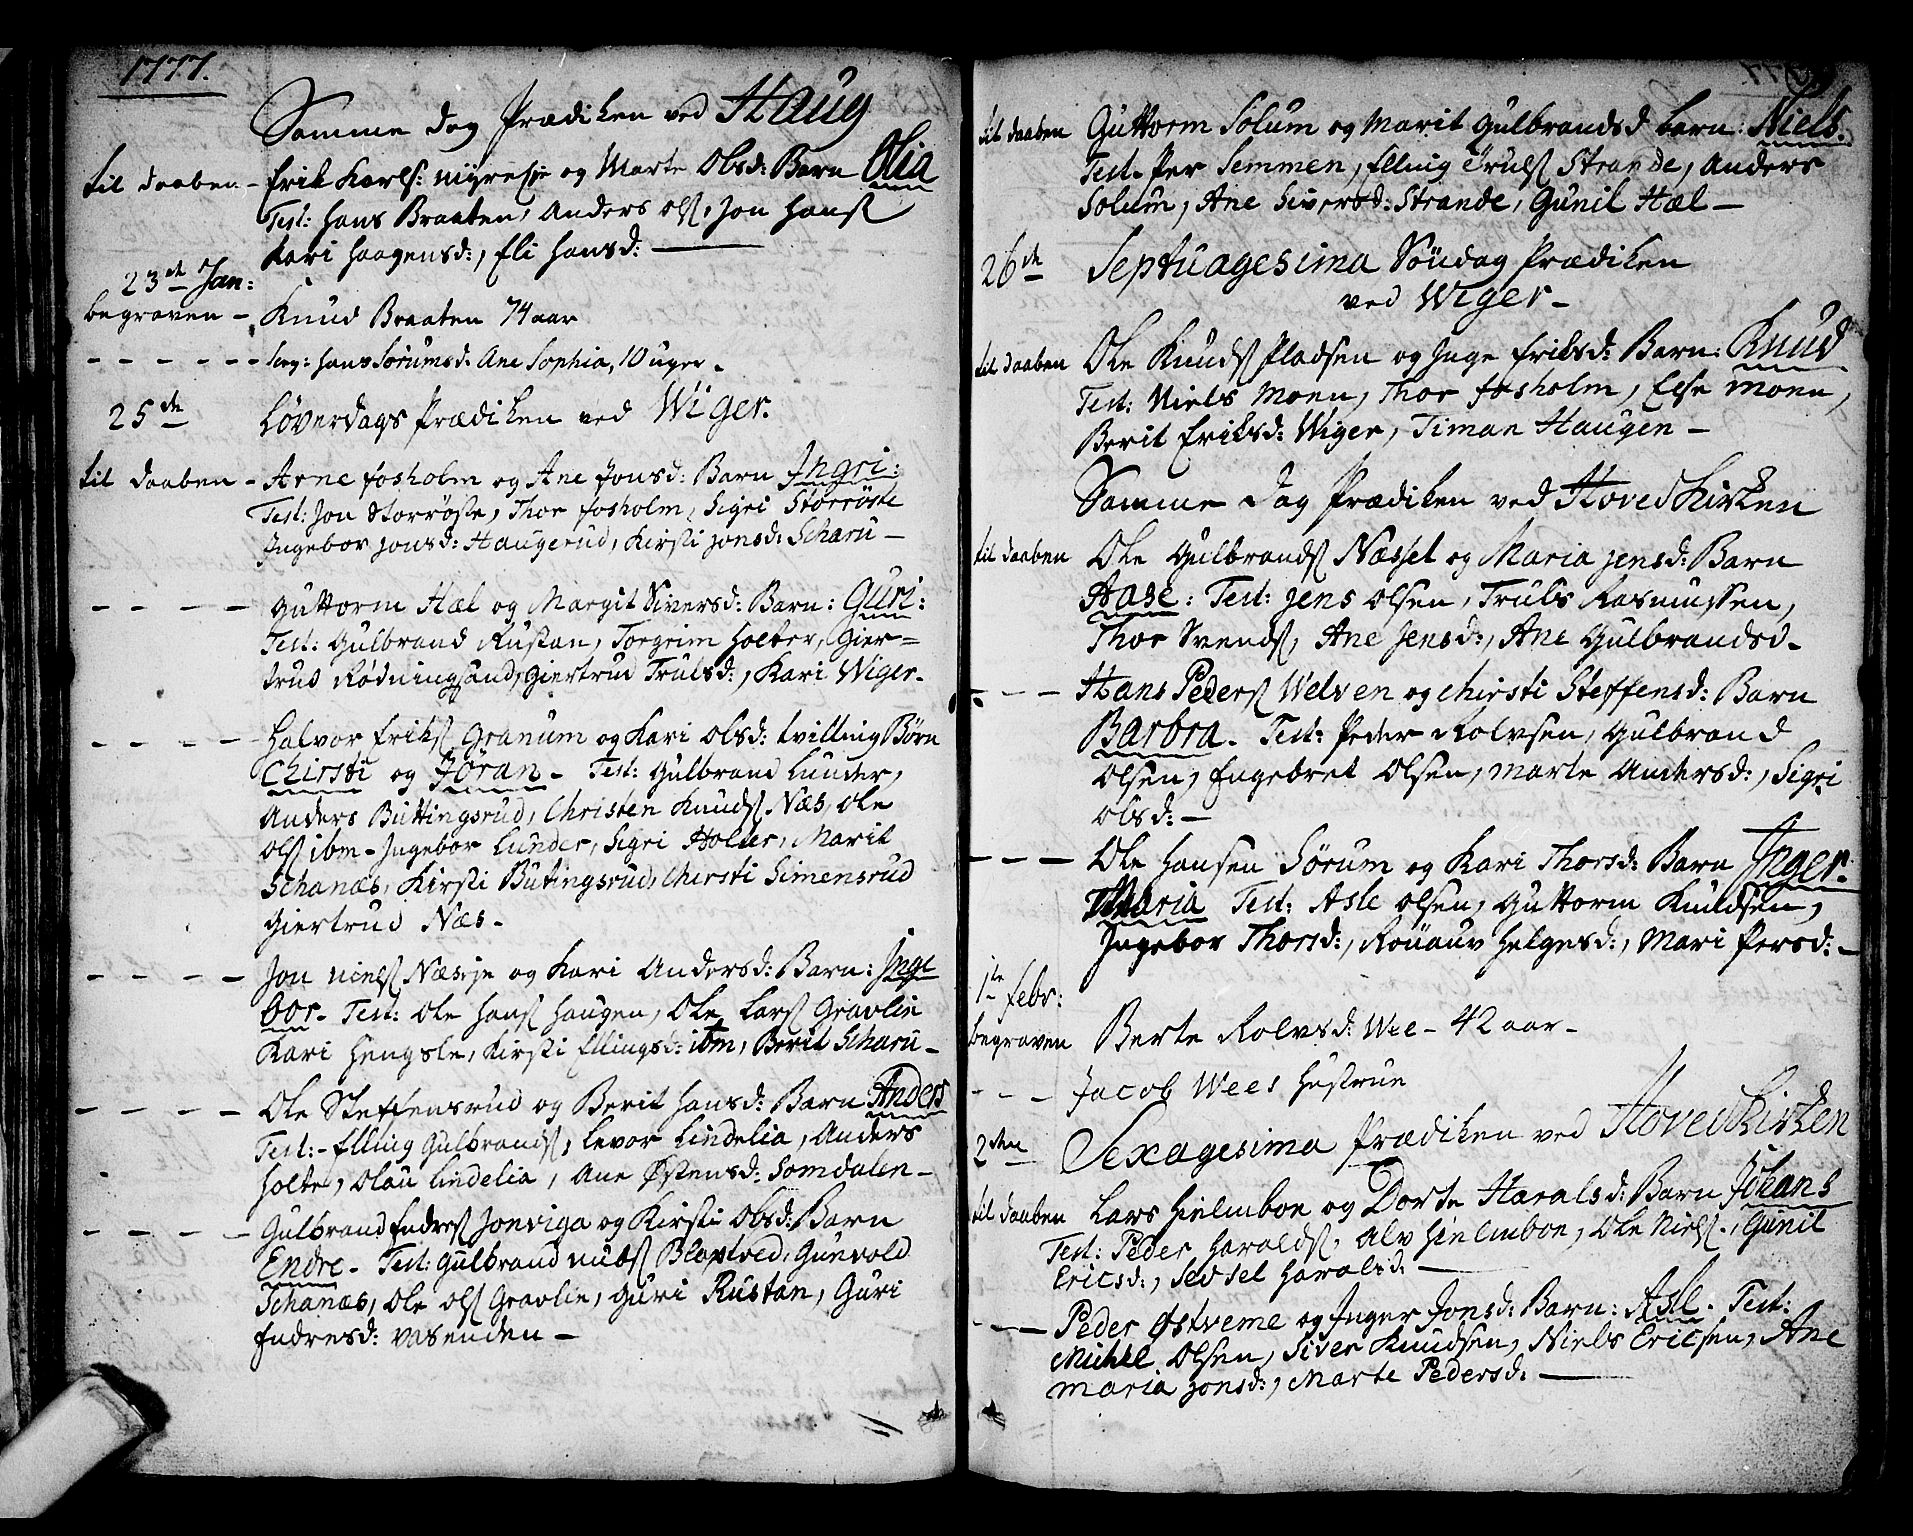 1777.
Samme dag Prædiken ved Haug
til daaben - Erik Karls: myresie og Marte Olsd: Barn Olia
Test: Hans Braaten, Anders Ols, Jon Hans
Kari Haagensd:, Eli Hansd:
23de Jan:
begraven - Knud Braaten 74 aar
- - - - - - Serg: Hans Sørumsd: Ane Sophia, 10 uger.
25de Løverdags Prædiken ved Wiger.
til daaben - Arne fosholm og Ane Jonsd: Barn Ingri:
Test: Jon Storrøste, Thor fosholm, Sigri Storröste
Ingebor Jonsd: Haugerud, Kirsti Jonsd: Scharu -
- - - - Guttorm Hæl og Margit Siversd: Barn: Guri:
Test: Gulbrand Rustan, Torgrim Holter, Gier=
trud Rødningsand, Giertrud Trulsd:, Kari Wiger.
- - - - Halvor Eriks Granum og Kari Olsd: tvilling Børn
Chirsti og Jöran - Test: Gulbrand Lunder,
Anders Buttingsrud, Christen Knuds Næs, Ole
Ols ibm - Ingebor Lunder, Sigri Holter, Marit
Schanæs, Kirsti Butingsrud, Chirsti Simensrud
Giertrud Næs -
- - - - Jon Niels Næseje og Kari Andersd: Barn: Inge
bor - Test: Ole Hans Haugen, Ole Lars Gravlie
Kari Hengsle, Kirsti Ellingsd: ibm, Berit Scharu -
- - - - Ole Steffensrud og Berit Hansd: Barn Anders
Test: - Elling Gulbrands, Levor Lindelia, Anders
Holte, Olau Lindelia, Ane Østensd: Somdalen -
- - - - Gulbrand Endres Jonviga og Kirsti Olsd: Barn
Endre - Test: Gulbrand Nubs Blaxtved, Gunvold
Schanæs, Ole Ols Gravlie, Guri Rustan, Guri
Endresd: Vasenden -
til daaben Guttorm Solum og Marit Gulbrandsd barn: Niels.
Test. Per Semmen, Elling Truls Strande, Anders
Solum, Ane Siversd: Strande, Gunil Hæl -
26de Septuagesima Söndag Prædiken
ved Wiger -
til daaben Ole Knuds Pladsen og Inge Eriksd: Barn: Knud
Test: Niels Moen, Thor fosholm, Else Moen,
Berit Eriksd: Wiger, Timan Haugen -
Samme Dag Prædiken ved Hoved Kirken
til daaben Ole Gulbrands Næsset og Maria Jensd: Barn
Aase: Test: Jens Olsen, Truls Rasmussen,
Thor Svends, Ane Jensd:, Ane Gulbrandsd -
- - - Hans Peders Welven og Chirsti Steffensd: Barn
Barbra - Test: Peder Rolvsen, Gulbrand
Olsen, Engebret Olsen, Marte Andersd:, Sigri
Olsd: -
- - - Ole Hansen Sørum og Kari Thorsd: Barn Inger
Maria Test: Asle Olsen, Guttorm Knudsen,
Ingebor Thorsd:, Rönauv Helgesd:, Mari Persd: -
1te febr:
begraven Berte Rolvsd: Wee - 42 aar -
- - - Jacob Wees Hustrue
2den Sexagesima Prædiken ved Hoved Kirken
til daaben Lars Hielmboe og Dorte Haralsd: Barn Johans
Test: Peder Haralds, Alv Hielmboe, Ole Niels, Gunil
Ericsd:, Sedsel Haralsd: -
- - - Peder Østveme og Inger Jonsd: Barn: Asle. Test:
Michel Olsen, Siver Knudsen, Niels Ericsen, Ane
Maria Jonsd:, Marte Pedersd: -